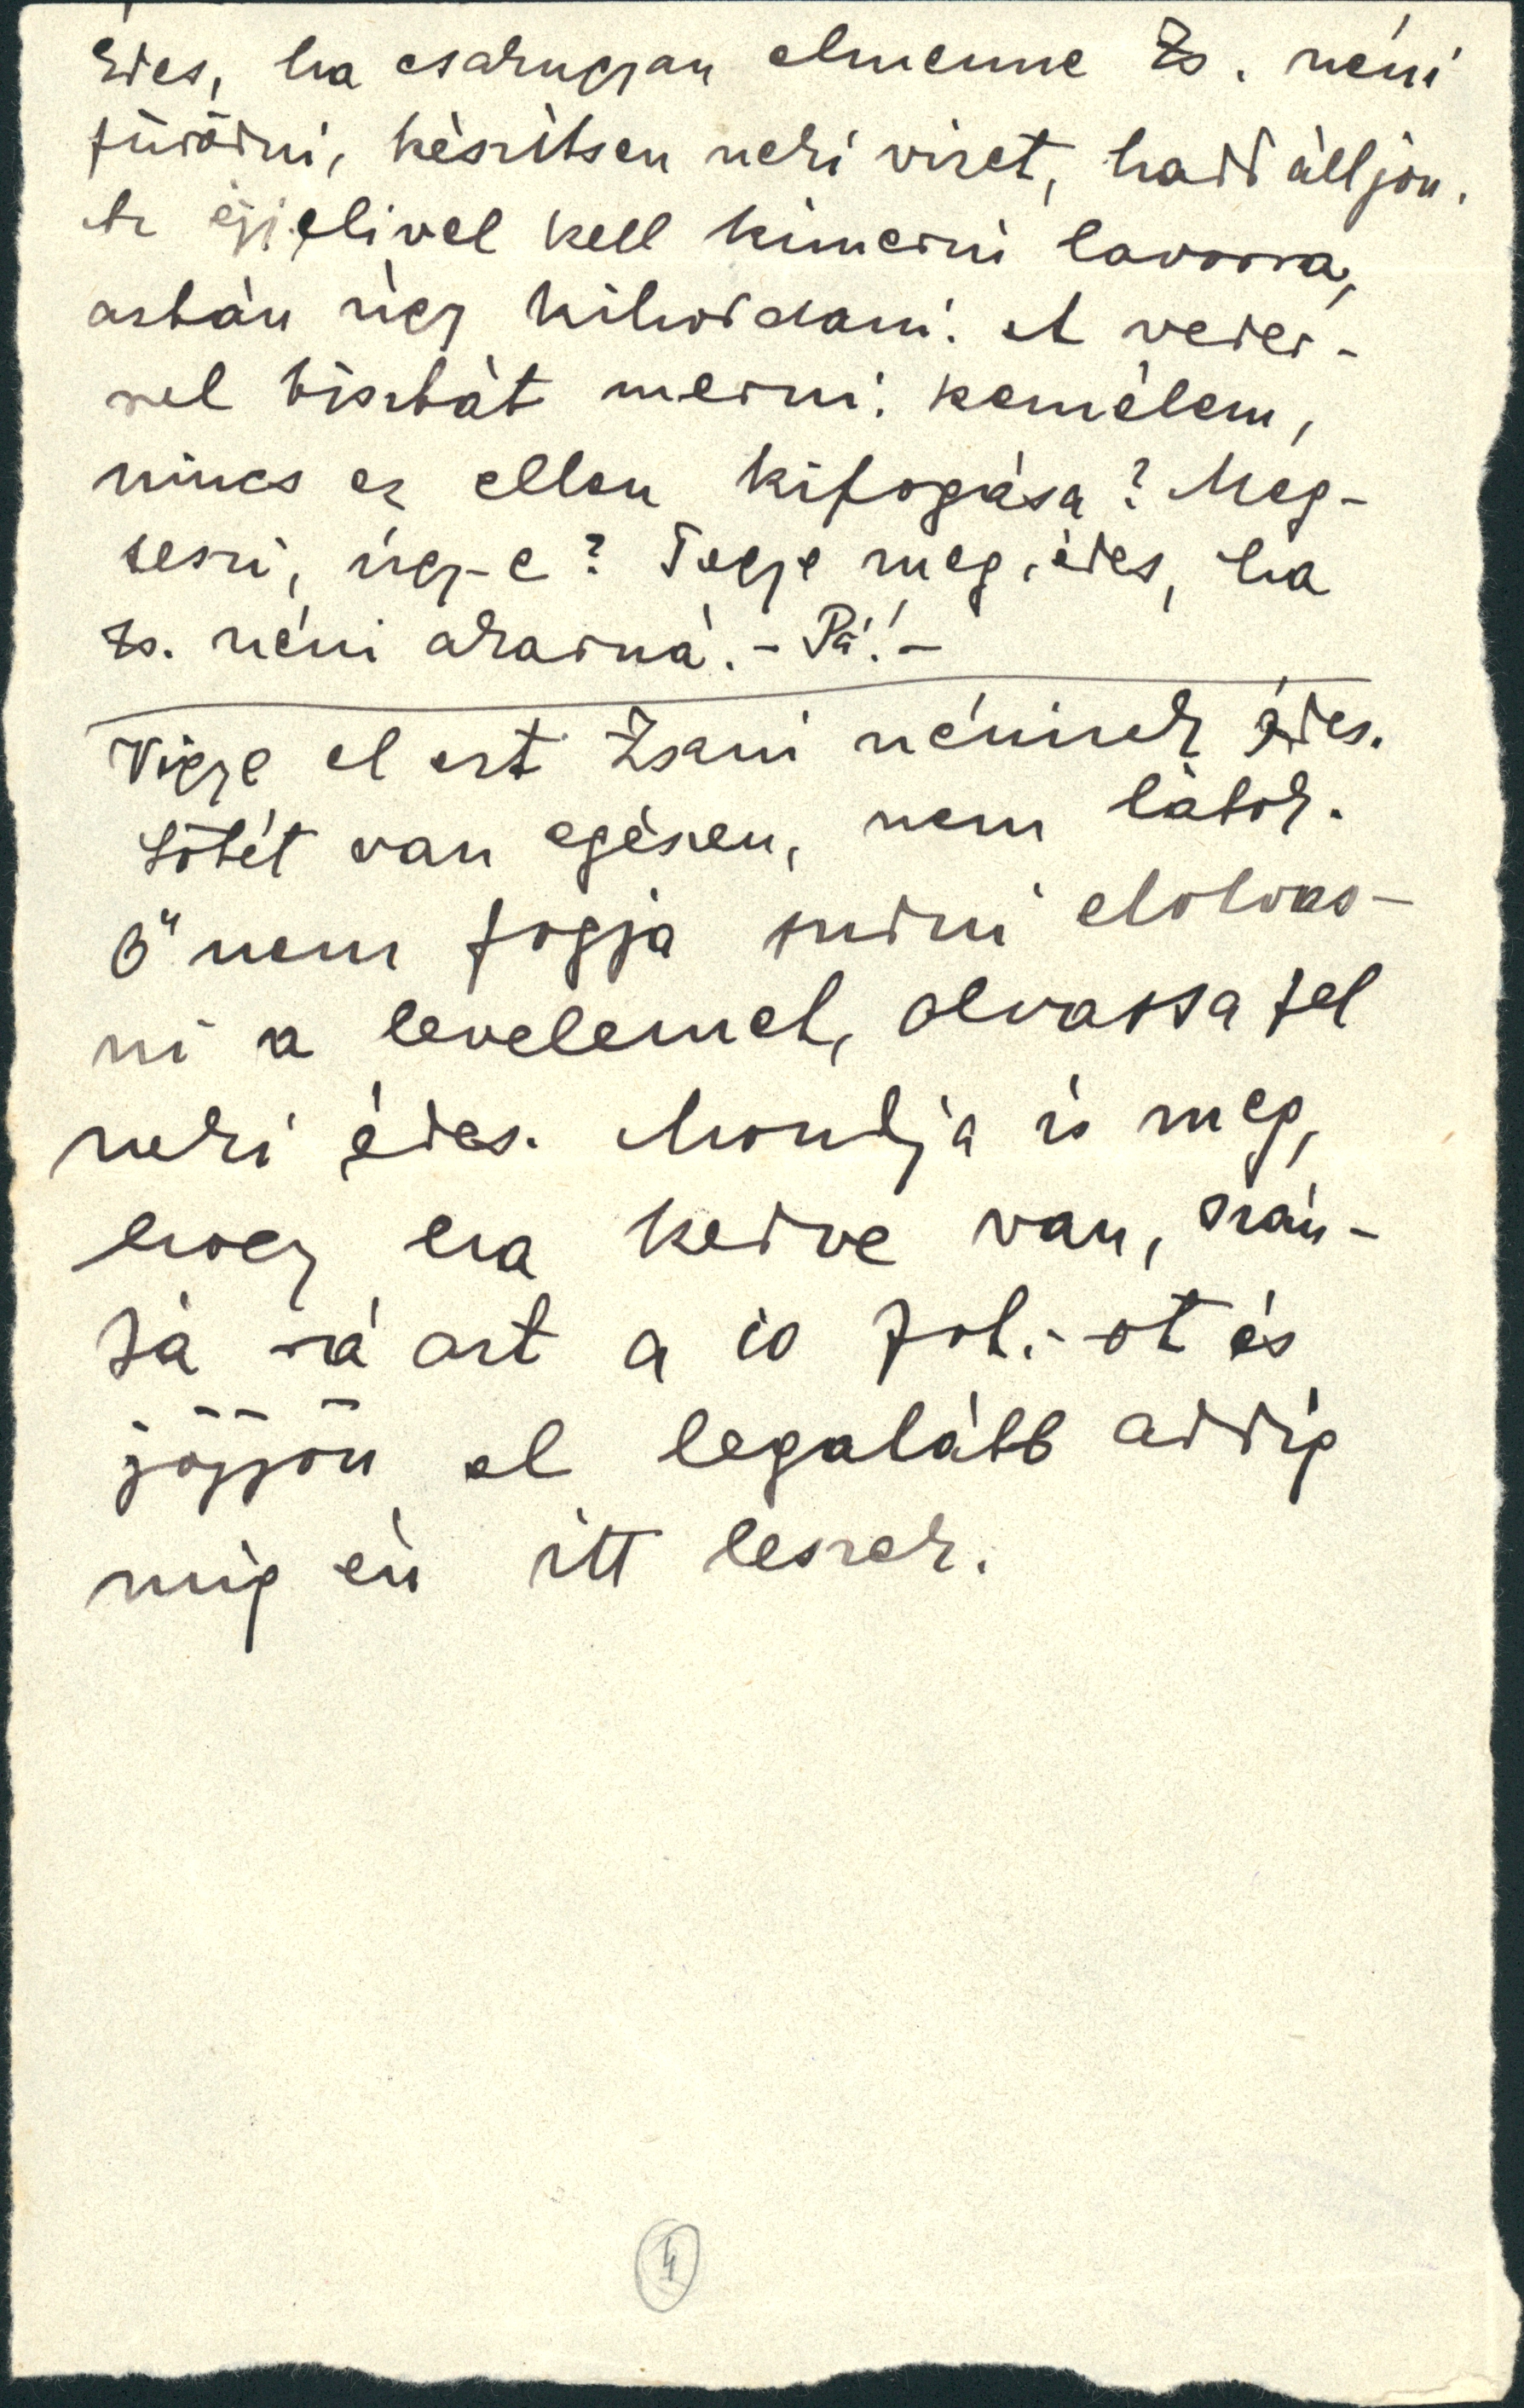 Édes, ha csakugyan elmenne Zs. néni
fürödni, készítsen neki vizet, hadd álljon.
Az éjjelivel kell kimerni lavorra,
aztán úgy kihordani. A veder-
rel tisztát merni. Remélem,
nincs ez ellen kifogása? Meg-
teszi, úgy-e? Tegye meg, édes, ha
Zs. néni akarná. – Pá! –
Vigye el ezt Zsani néninek édes.
Sötét van egészen, nem látok.
Ő nem fogja tudni elolvas-
ni a levelemet, olvassa fel
neki édes. Mondja is meg,
hogy ha kedve van, szán-
ja rá azt a 10 frt.-ot és
jőjjőn el legalább addig
míg én itt leszek.
4